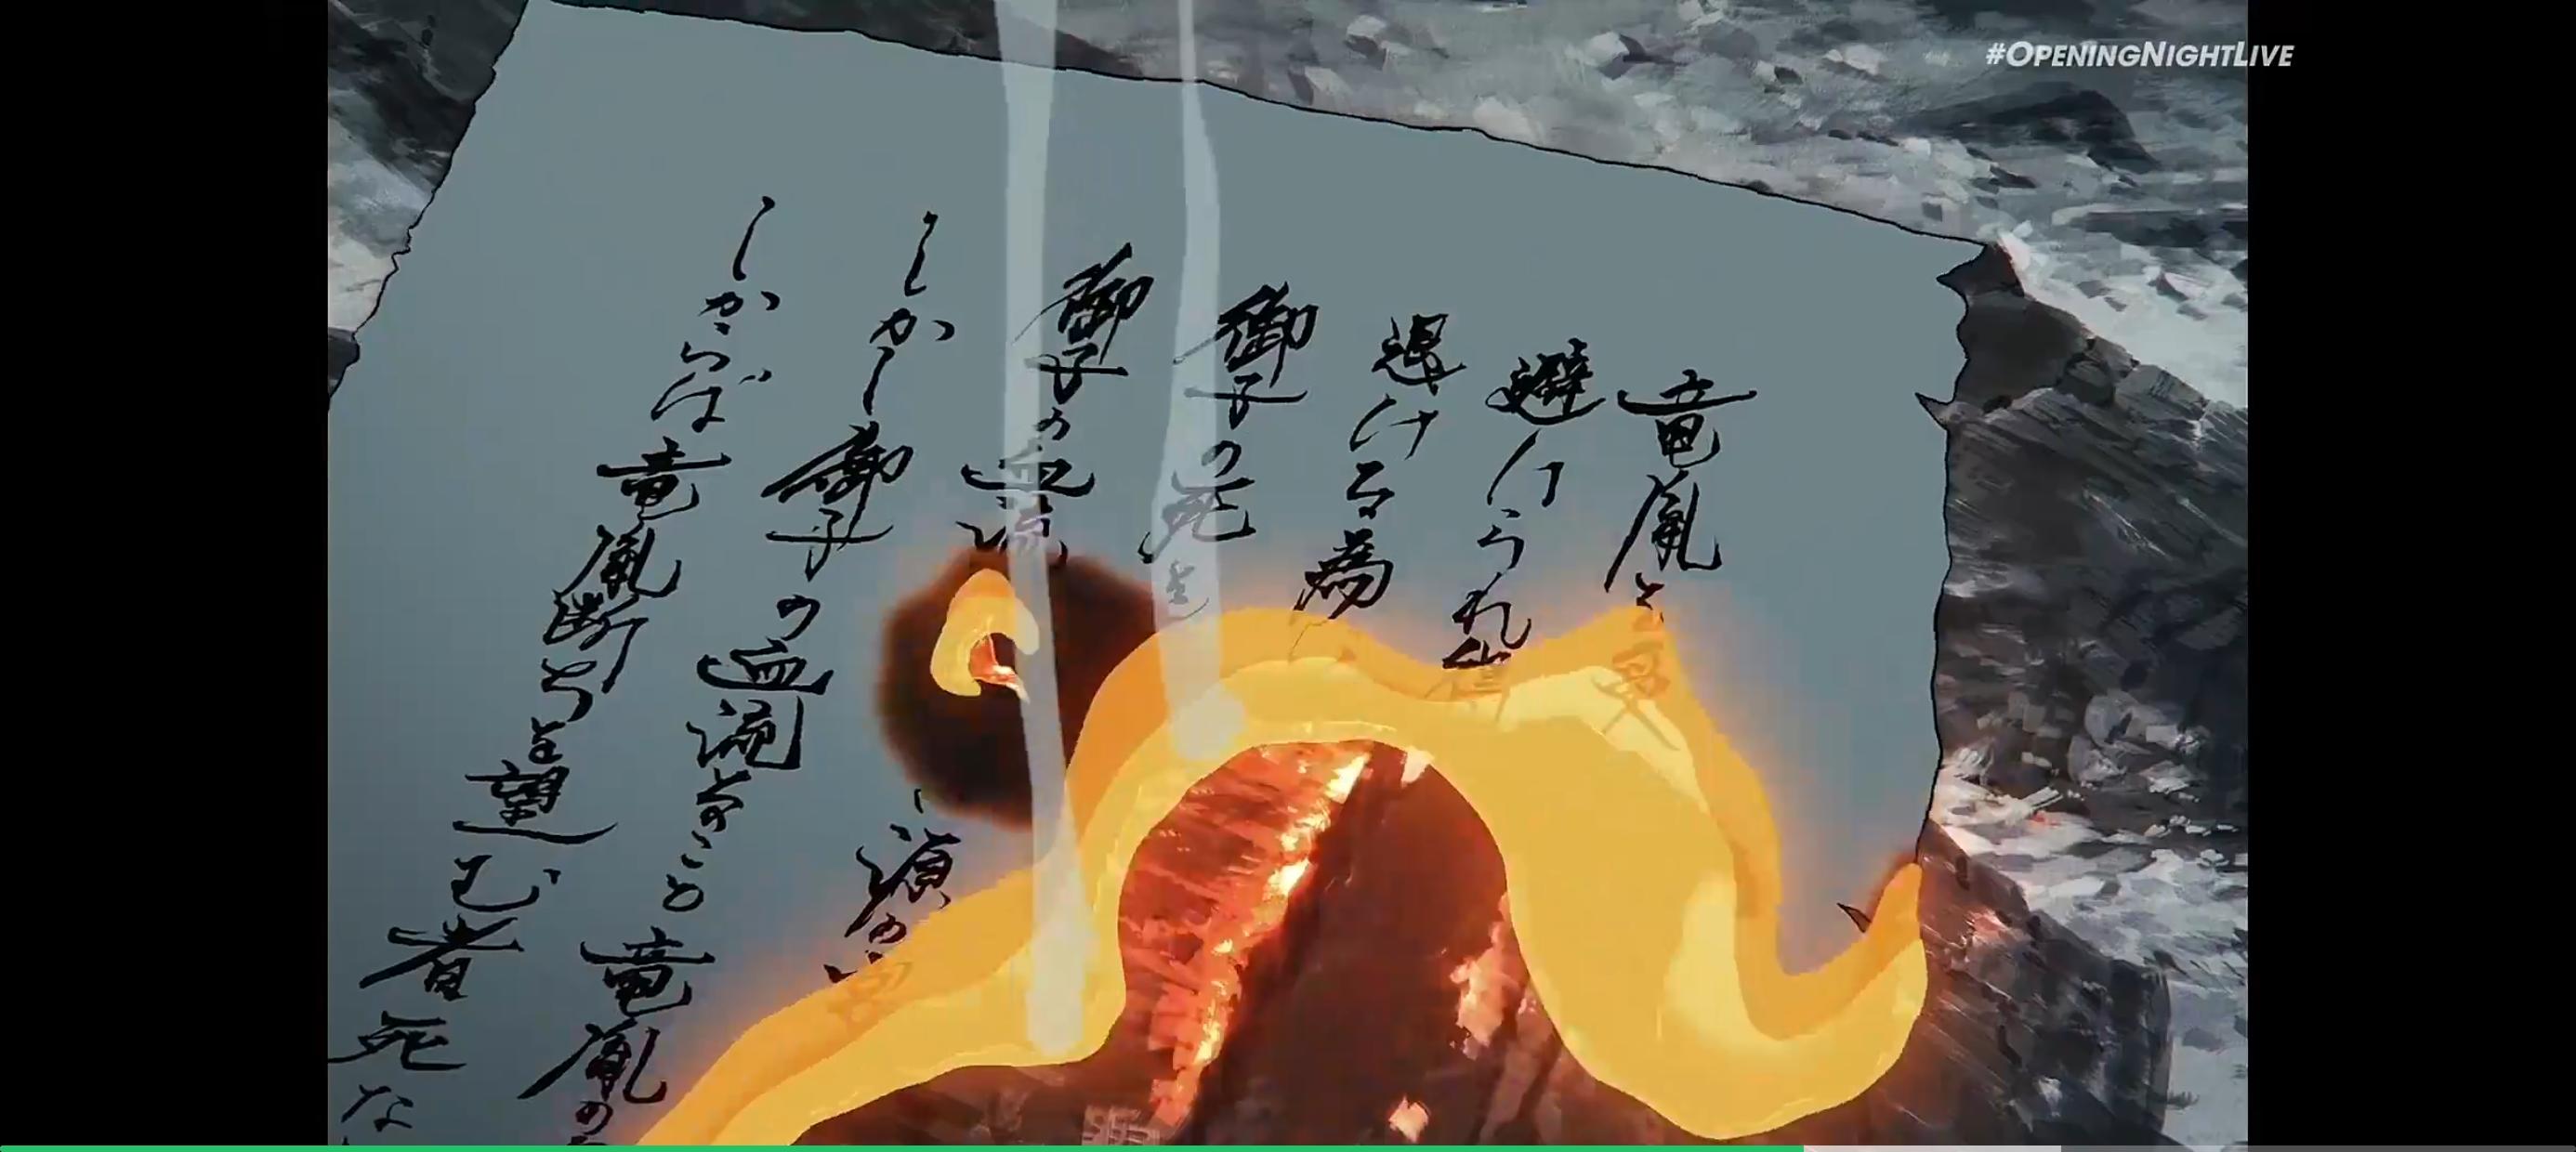 竜胤と
避けられ
退ける為
御子の死を
御子の血流 源の
しかし御子の血流 こと竜胤の
しからば竜胤断ちを望む者死な
#OPENINGNIGHTLIVE